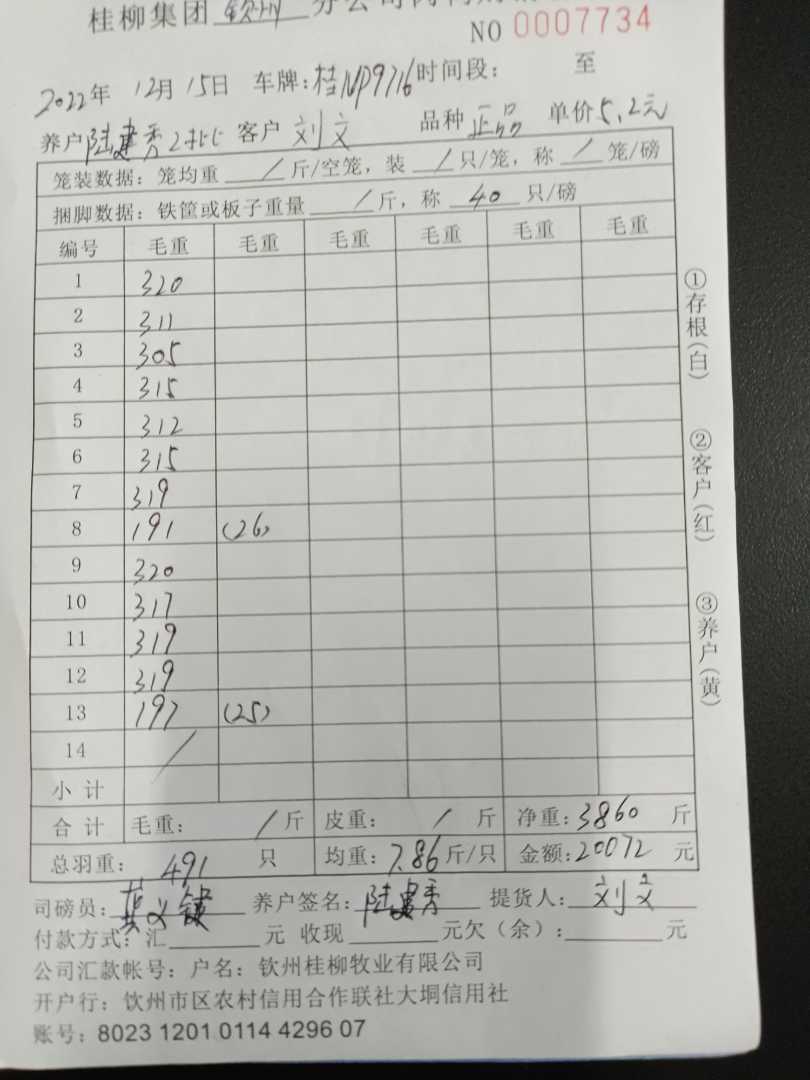 桂柳集团 钦州 分公司
NO 0007734
2022年 12月 15日 车牌:桂NP9716 时间段: 至
养户 陆建秀 客户 刘文 品种 正品 单价 5.2元
笼装数据: 笼均重 / 斤/空笼, 装 / 只/笼, 称 / 笼/磅
捆脚数据: 铁筐或板子重量 / 斤, 称 40 只/磅
编号 毛重 毛重 毛重 毛重 毛重 毛重
1 320
2 311
3 305
4 315
5 312
6 315
7 319
8 191 (26)
9 320
10 317
11 319
12 319
13 197 (25)
14 /
小计
合计 毛重: / 斤 皮重: / 斤 净重:3860 斤
总羽重: 491 只 均重:7.86斤/只 金额:20072 元
司磅员: 养户签名: 陆建秀 提货人: 刘文
付款方式: 汇 元 收现 元欠(余): 元
公司汇款帐号: 户名: 钦州桂柳牧业有限公司
开户行: 钦州市区农村信用合作联社大垌信用社
账号: 8023 1201 0114 4296 07
①存根(白) ②客户(红) ③养户(黄)